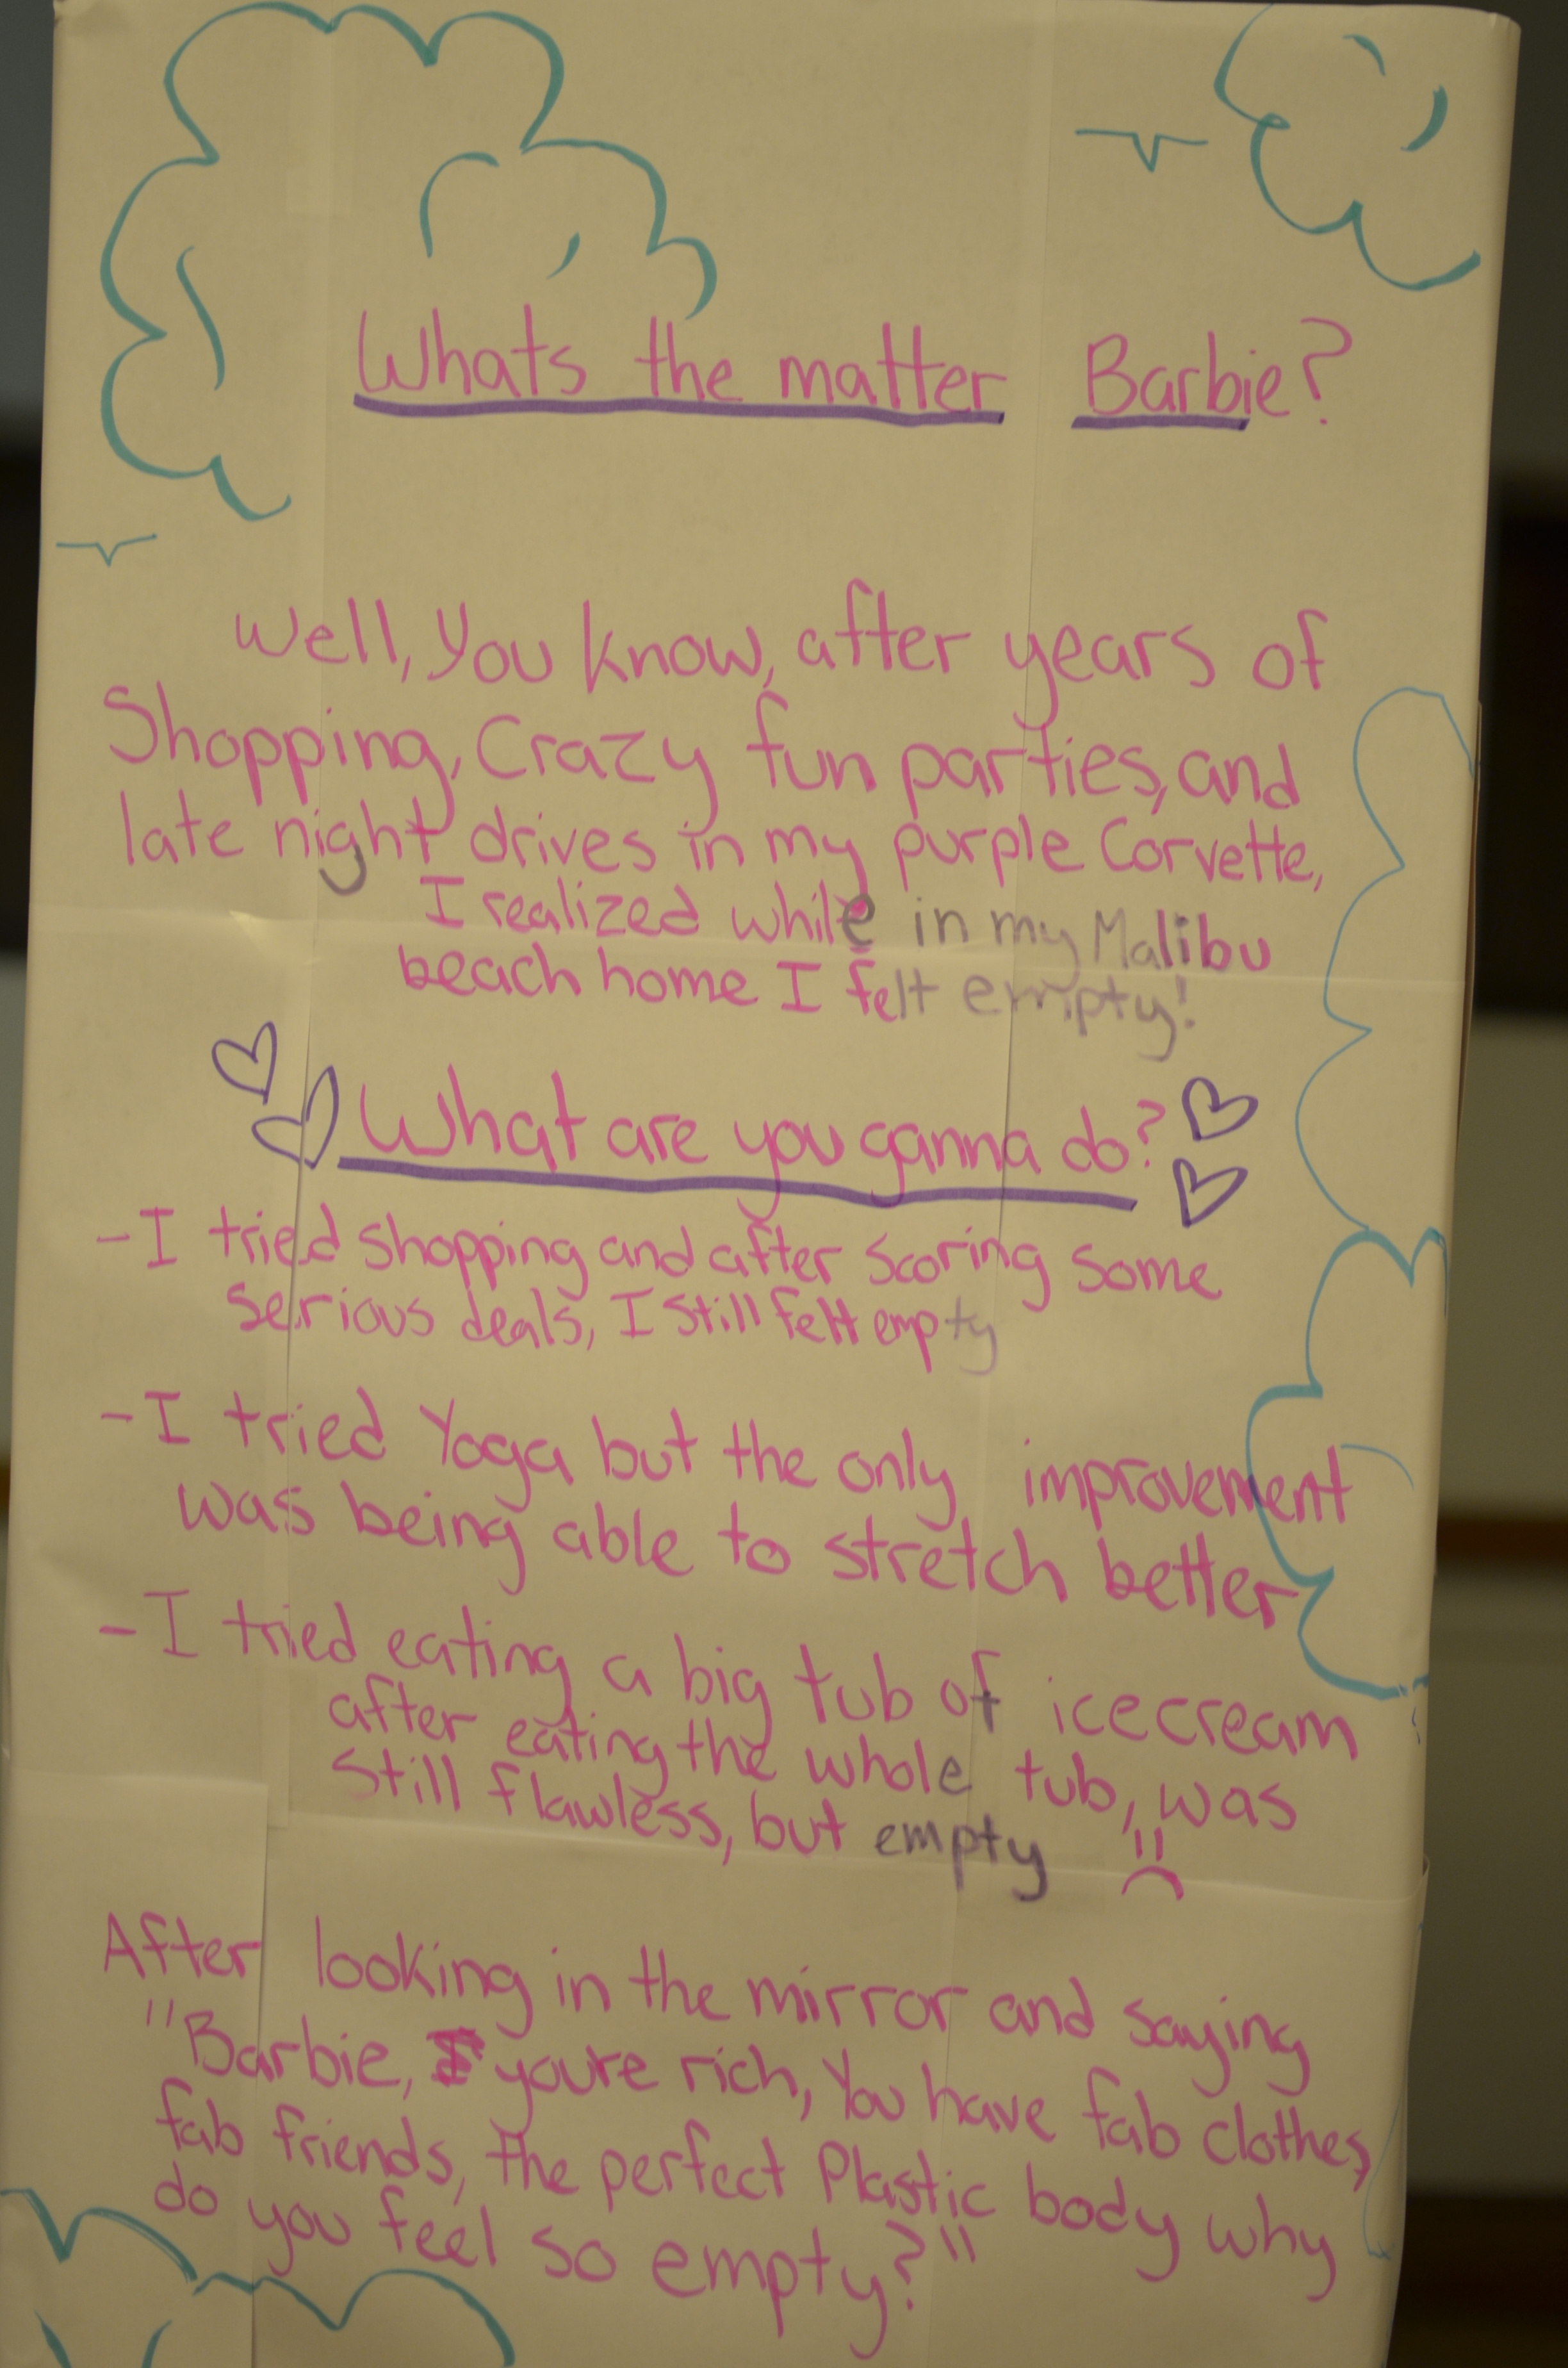 Whats the matter Barbie?
Well, you know, after years of
Shopping, Crazy fun parties, and
late night drives in my purple Corvette,
I realized while in my Malibu
beach home I felt empty!
What are you ganna do?
-I tried shopping and after scoring some
serious deals, I still felt empty
-I tried Yoga but the only improvement
was being able to stretch better
-I tried eating a big tub of icecream
after eating the whole tub, was
Still flawless, but empty
After looking in the mirror and saying
"Barbie, you're rich, You have fab clothes,
fab friends, the perfect Plastic body why
do you feel so empty?"